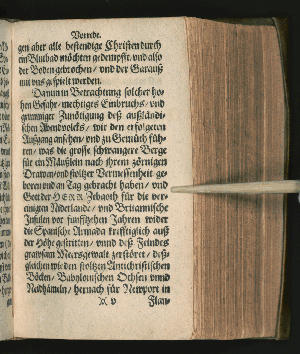 Vorrede.
gen aber alle bestendige Christen durch
ein Blutbad möchten gedempfft, vnd also
der Boden gebrochen / vnd der Garauß
mit vns gespielt werden.
Dann in Betrachtung solcher ho-
hen Gefahr / mechtiges Einbruchs / vnd
grimmiger Zunötigung deß außländi-
schen Abendvolcks / wir den erfolgeten
Außgang ansehen / vnd zu Gemüth füh-
ren / was die grosse schwangere Berge
für ein Mäußlein nach jhrem zörnigen
Drawen / vnd stoltzer Vermessenheit ge-
boren vnd an Tag gebracht haben / vnd
Gott der HERR Zebaoth für die ver-
einigten Niderlande / vnd Britannische
Insulen vor funfftzehen Jahren wider
die Spanische Armada krefftiglich auß
der Höhe gestritten / vnnd deß Feindes
grawsam Meersgewalt zerstöret / deß-
gleichen wie den stoltzen Antichristischen
Böcken / Babylonischen Ochsen vnnd
hernach für Newport in
v
Flan-